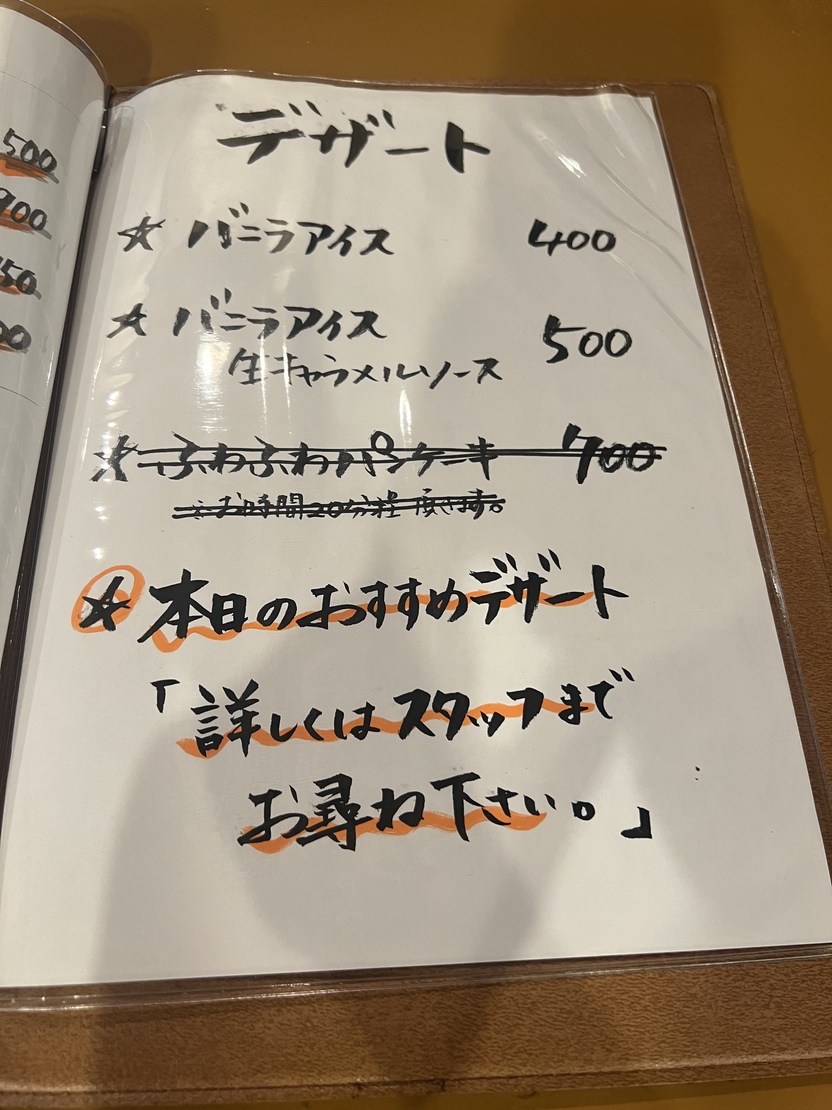 500
900
50
00
デザート
☆ バニラアイス 400
☆ バニラアイス 500
生キャラメルソース
☆ ふわふわパンケーキ 700
※お時間20分程頂きます。
☆ 本日のおすすめデザート
「詳しくはスタッフまで
お尋ね下さい。」